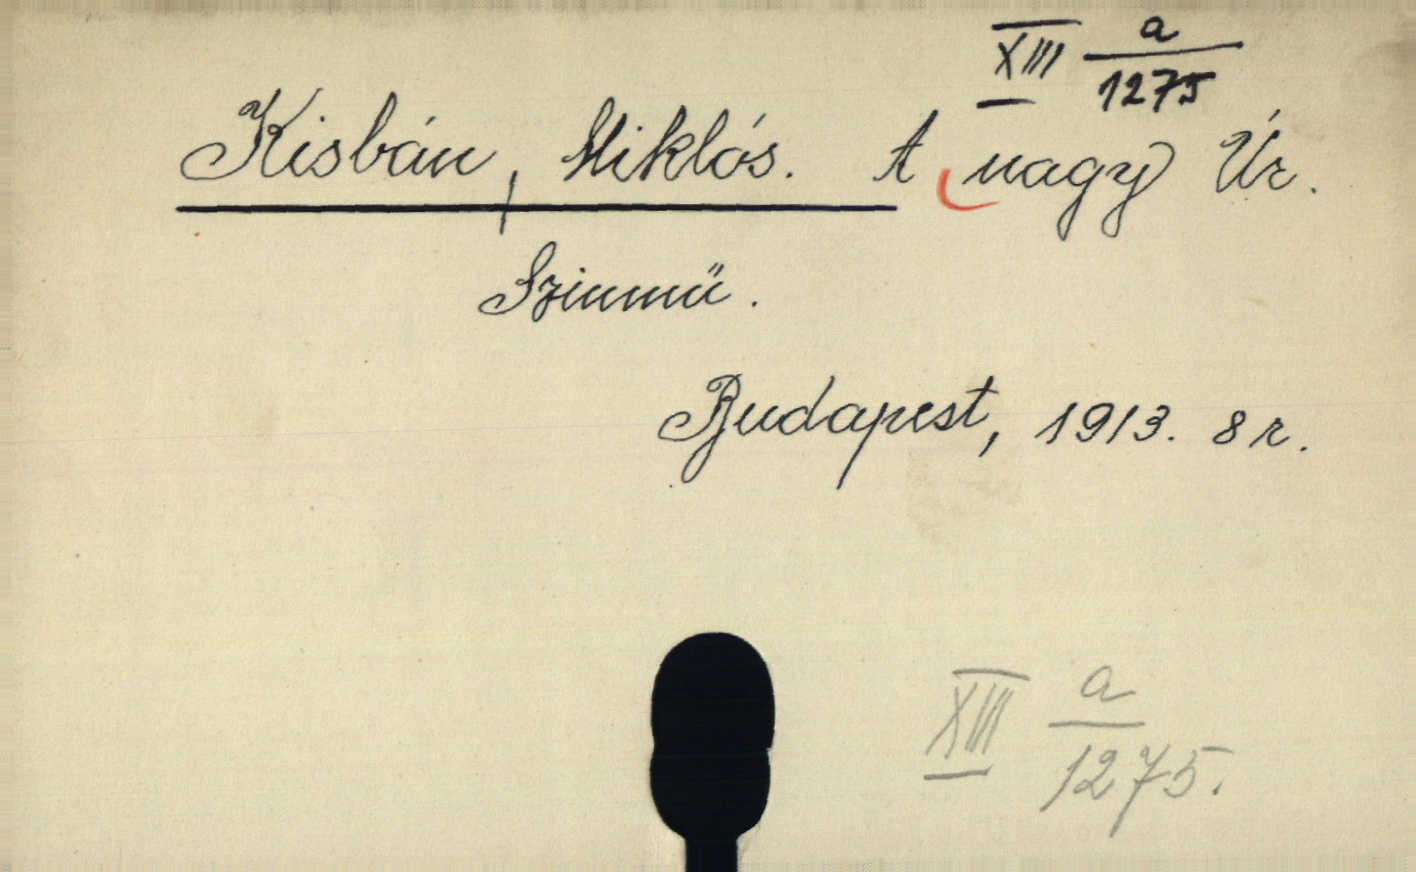 XIII a/1275
Kisbán, Miklós. A nagy Úr.
Szinmű.
Budapest, 1913. 8 r.
XIII a/1275.